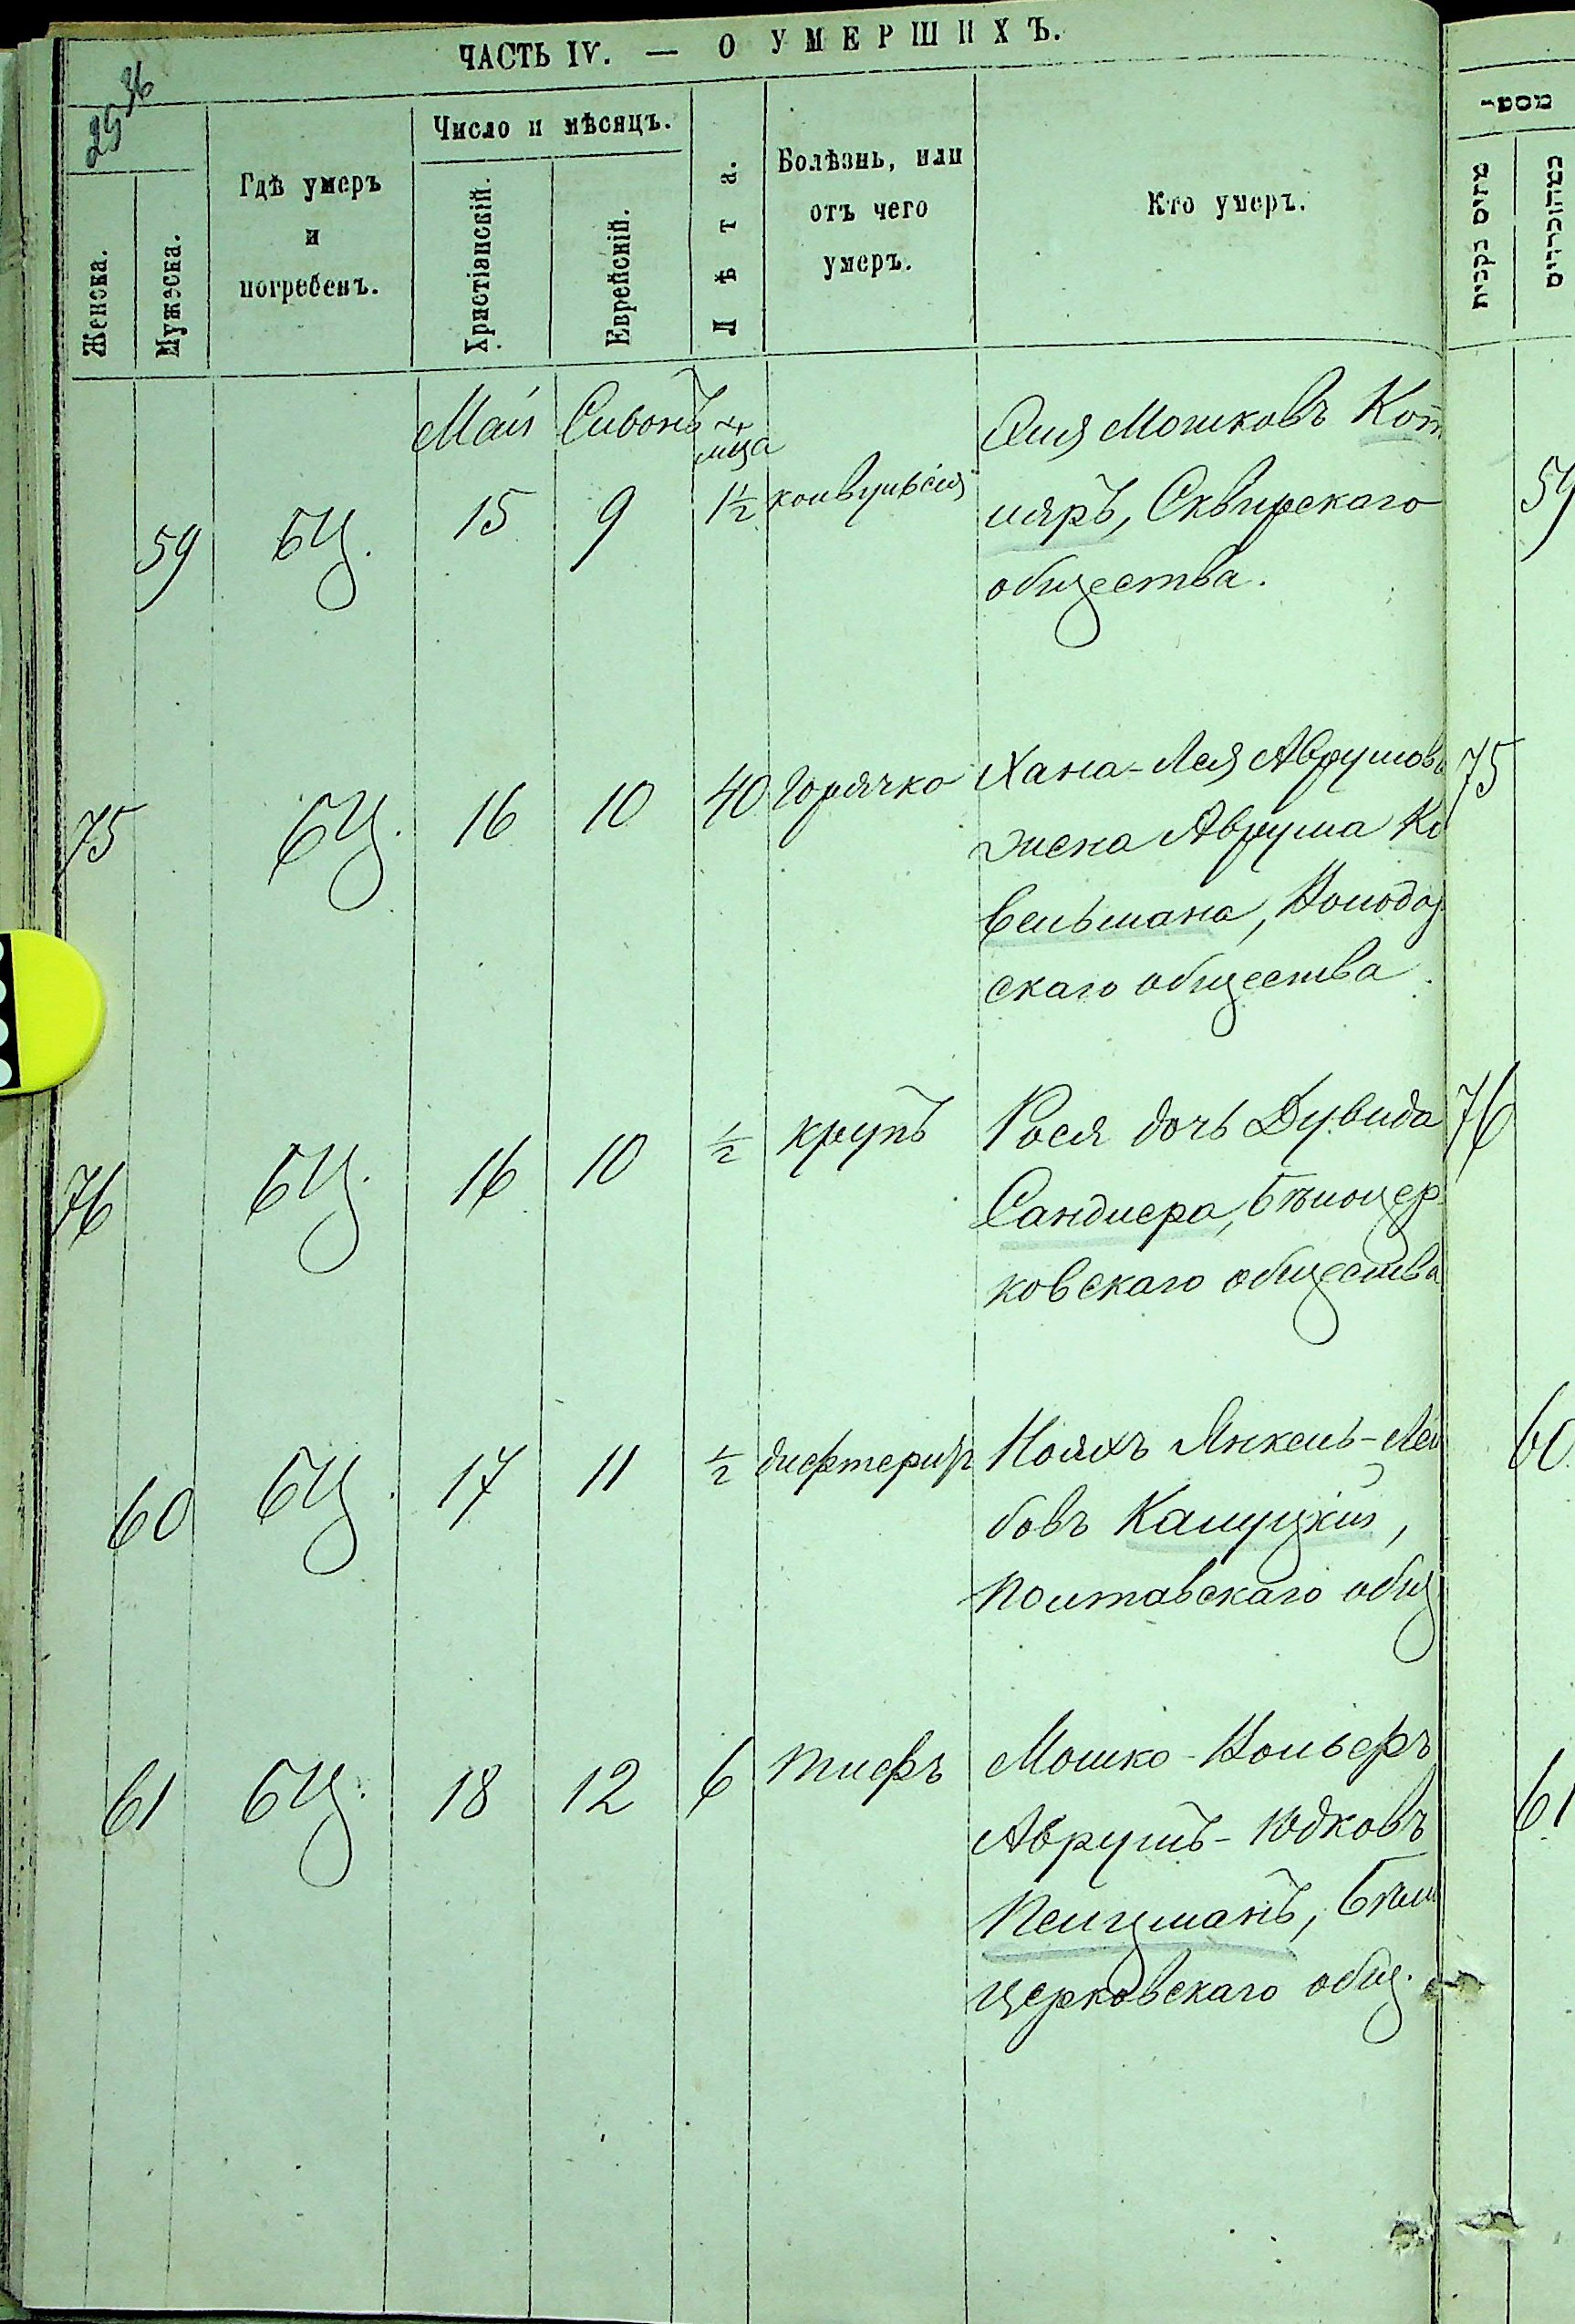 ЧАСТЬ IV. — О УМЕРШИХЪ.
36
25
Женска.
Мужеска.
Гдѣ умеръ
и
погребенъ.
Число и мѣсяцъ.
Христіанскій.
Еврейскій.
Лѣта.
Болѣзнь, или
отъ чего
умеръ.
Кто умеръ.
Маія Сивонъ мца
59 БЦ. 15 9 1½ конвульсія
Мошковъ Кот
ляръ, Сквирскаго
общества.
59
75 БЦ. 16 10 40 горячка
Хана-Лея Аврумова
жена Аврума Ко
вельмана,
скаго общества
75
76 БЦ. 16 10 ½ крупъ
Рося дочь Дувида
Сандлера, Бѣлоцер
ковскаго общества
76
60 БЦ. 17 11 ½ дифтеритъ
Нояхъ Янкель-Лей
бовъ Калуцкій,
Полтавскаго общ
60
61 БЦ. 18 12 6 тифъ
Мошко-Вольфъ
Аврумъ-Юдковъ
Пельцманъ, Бѣло
церковскаго общ.
61